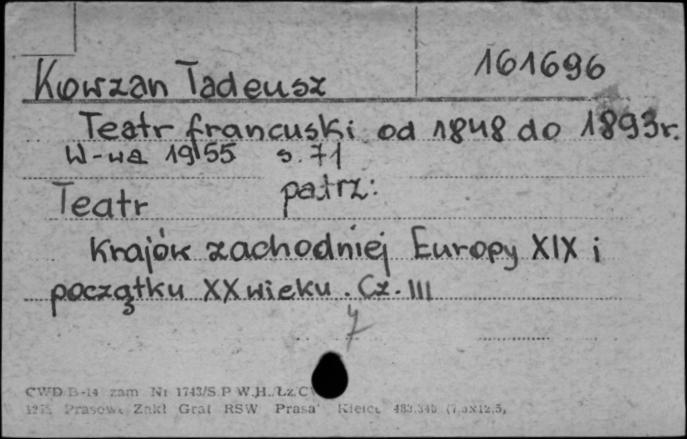 Kowzan Tadeusz 161696
Teatr francuski od 1848 do 1893r.
W-wa 1955 s. 71
Teatr patrz:
Krajów zachodniej Europy XIX i
początku XX wieku. Cz. III
CWD B-14 zam Nr 1743/S P W.H. Łz.
Prasowe Zakł Graf RSW Prasa Kielce